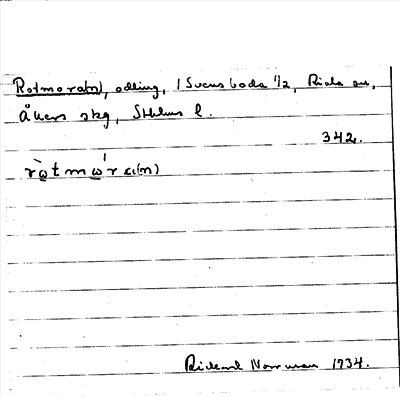 Rotmora(n), odling, 1 Svensboda 1/2, Riala sn,
Åkers skg, Sthlms l.
342.
ròtmω'rɑ(n)
Rickard Norrman 1934.